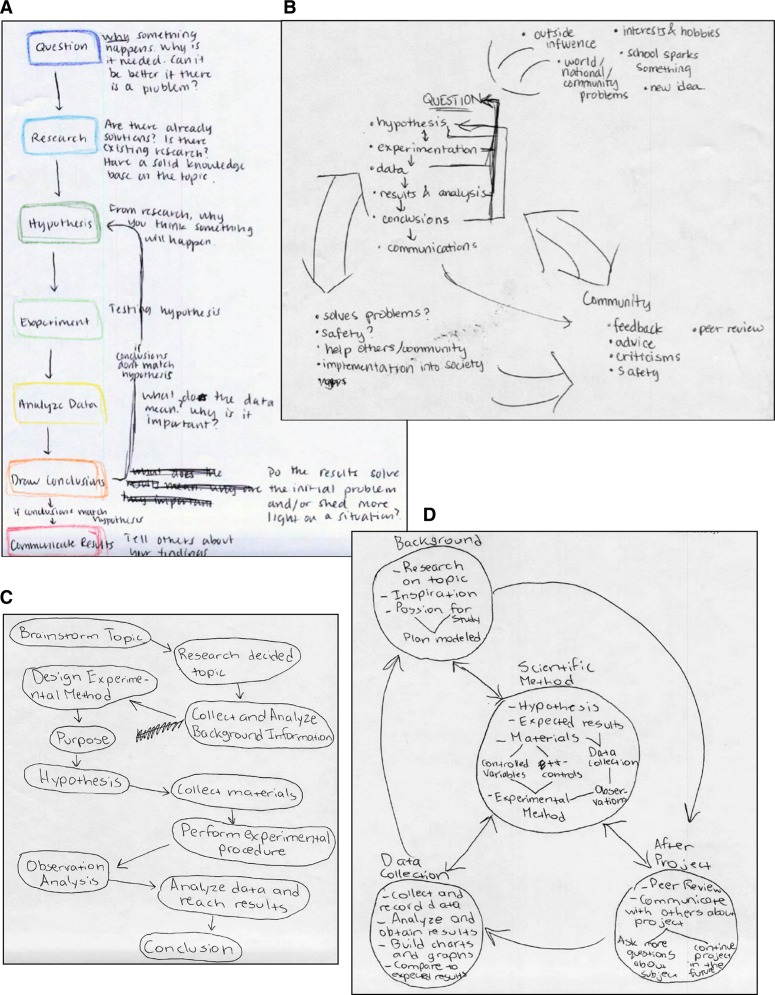 A
Question
why something
happens. Why is
it needed. Can it
be better if there
is a problem?
Research
Are there already
solutions? Is there
existing research?
Have a solid knowledge
base on the topic.
Hypothesis
From research, why
you think something
will happen.
Experiment
Testing hypothesis
if
conclusions
don't match
hypothesis
Analyze Data
what does the data
mean? why is it
important?
Draw Conclusions
what does the
results mean. why are
they important
Do the results solve
the initial problem
and/or shed more
light on a situation?
if conclusions match
hypothesis
Communicate Results
Tell others about
your findings
B
• outside
influence
• world/
national/
community
problems
• interests & hobbies
• school sparks
something
• new idea
QUESTION
• hypothesis
• experimentation
• data
• results & analysis
• conclusions
• communications
• solves problems?
• safety?
• help others/community
• implementation into society
Community
• feedback
• advice
• criticisms
• safety
• peer review
C
Brainstorm Topic
Research decided
topic
Design Experime-
ntal Method
Collect and Analyze
Background Information
Purpose
Hypothesis
Collect materials
Perform experimental
procedure
Observation
Analysis
Analyze data and
reach results
Conclusion
D
Background
- Research
on topic
- Inspiration
- Passion for
study
Plan modeled
Scientific
Method
- Hypothesis
- Expected results
- Materials
Controlled
variables
++-
controls
Data
collection
Observation
- Experimental
Method
Data
Collection
- Collect and
record data
- Analyze and
obtain results
- Build charts
and graphs
- Compare to
expected results
After
Project
- Peer Review
- Communicate
with others about
project
Ask more
questions
about
subject
continue
project
in the
future